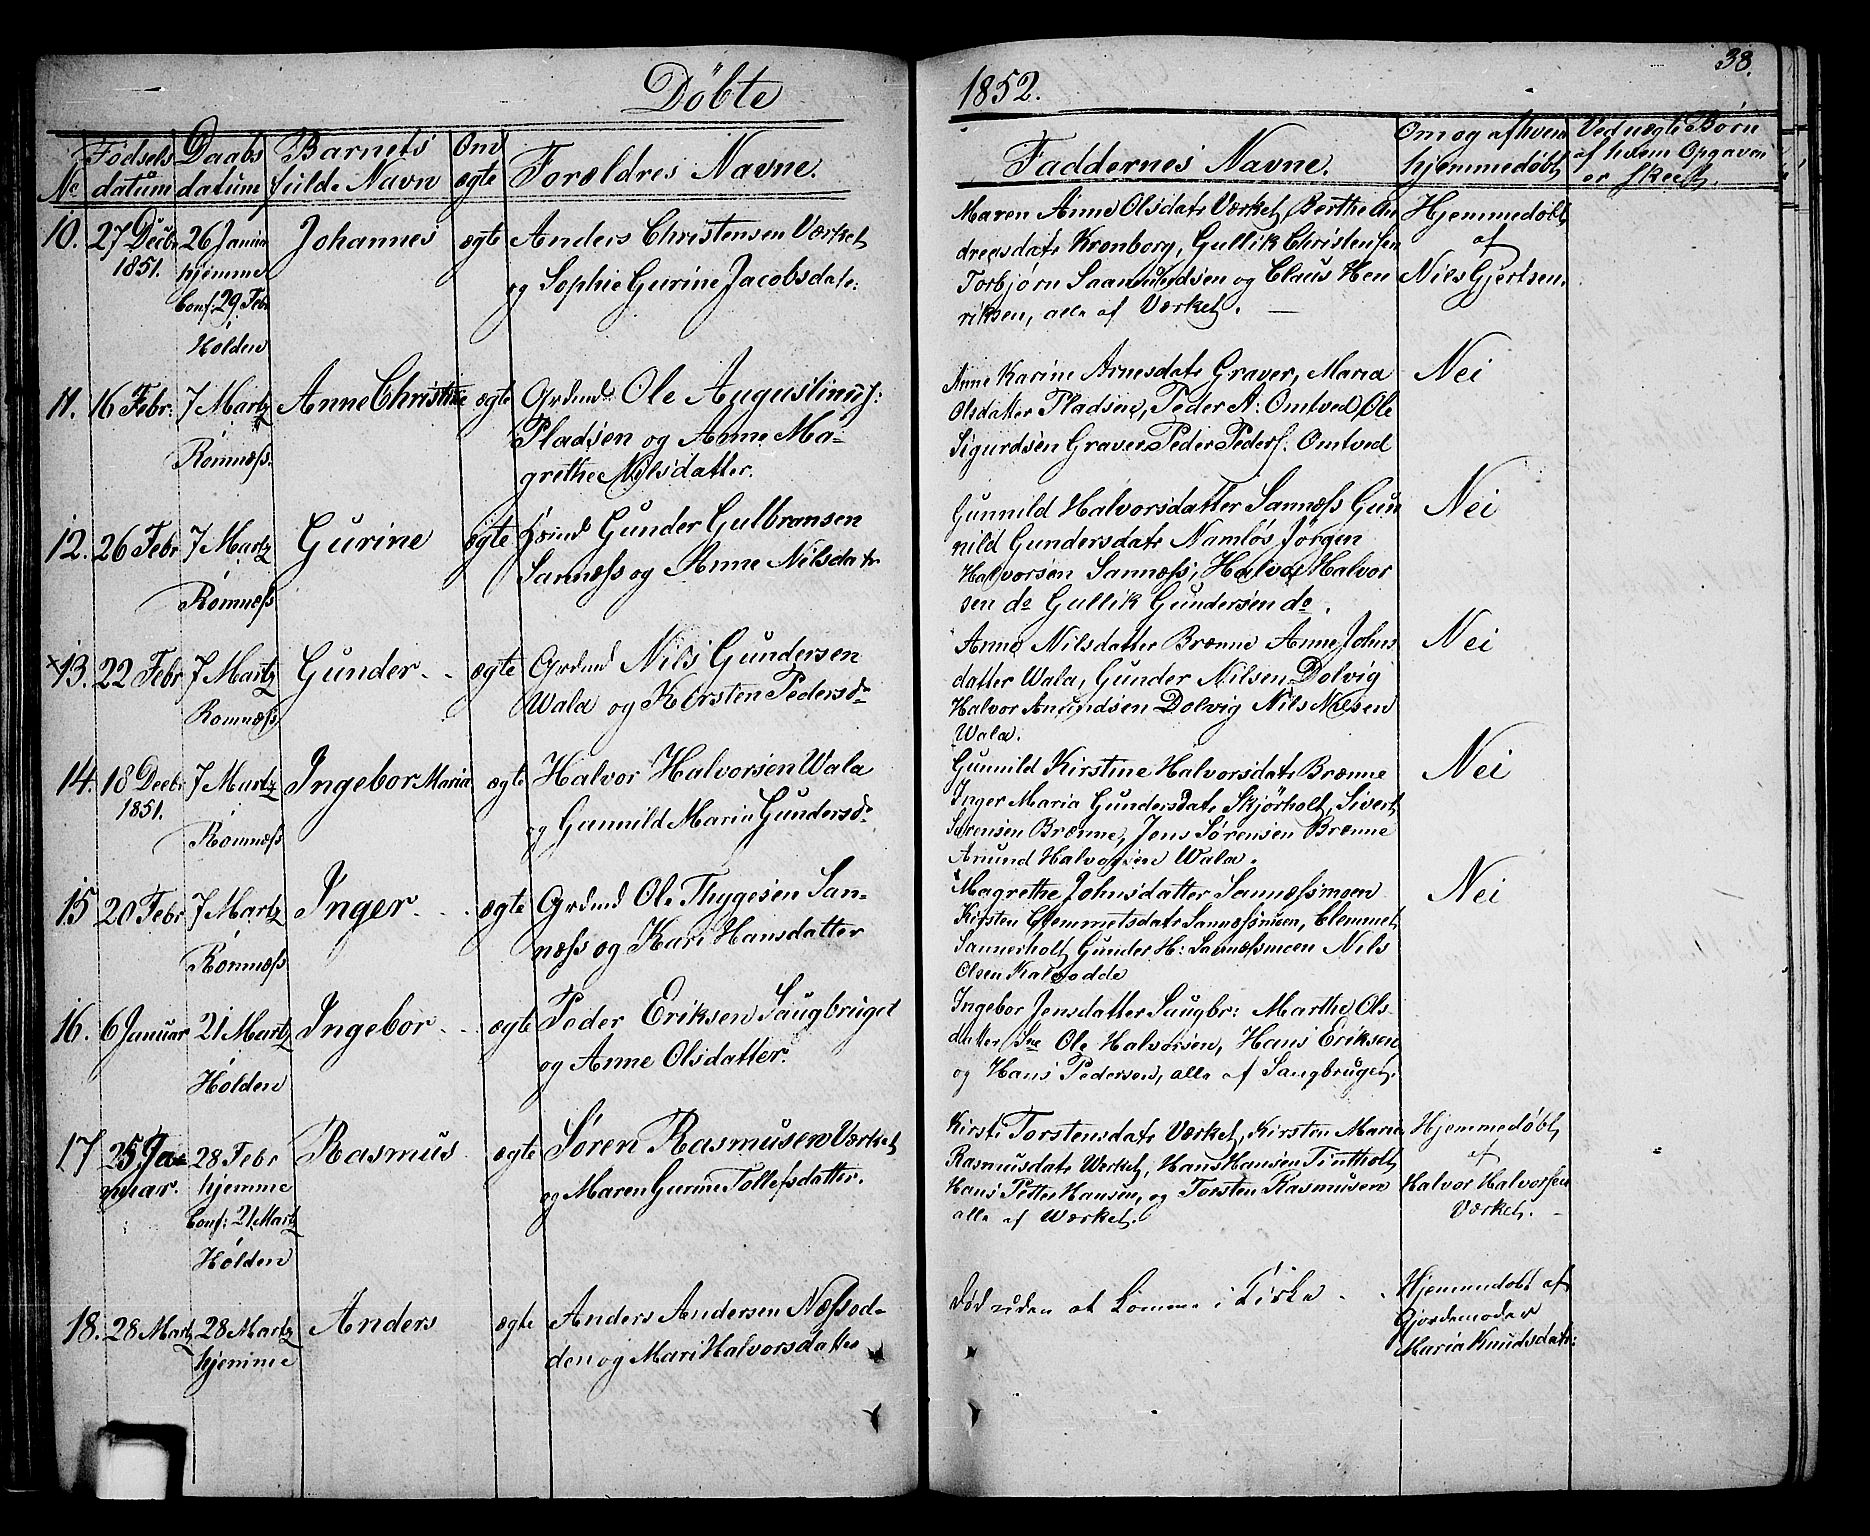 Döbte
1852.
38.
No
Födsels datum
Daabs datum
Barnets fulde Navn
Om ægte
Forældres Navne.
Faddernes Navne.
Om og af hvem hjemmedöbt
Ved uægte Børn af hvem Opgaven er skeet.
10.
27 Decbr
1851.
26 Janua
hjemme
Conf: 29 Febr
i
Holden
Johannes
ægte
Anders Christensen Værket
og Sophie Gurine Jacobsdatr:
Maren Anne Olsdatr Værket, Berthe An
dreasdatr Kronborg, Gullik Christensen
Torbjørn Saamundsen og Claus Hen
riksen, alle af Værket. —
Hjemmedöbt
af
Niels Gjertsen.
11.
16 Febr:
7 Martz
Romnæss.
Anne Christine
ægte
Grdmd Ole Augustinuss:
Pladsen og Anne Ma-
grethe Nilsdatter.
Anne Karine Arnesdatr Graver, Maria
Olsdatter Pladsen, Peder A: Omtved, Ole
Sigurdsen Graver, Peder Peders: Omtved
Nei
12.
26 Febr
7 Martz
Romnæss
Gurine
ægte
Grdmd Gunder Gulbransen
Sannæss og Anne Nilsdatr
Gunnild Halvorsdatter Sannæss Gun
nild Gundersdatr Namløs Jörgen
Halvorsen Sannæss, Halvor Halvor
sen do Gullik Gundersen do.
Nei
×13.
22 Febr
7 Martz
Romnæss
Gunder
ægte
Grdmd Nils Gundersen
Wala og Kirsten Pedersdr
Anne Nilsdatter Brænne Anne Johns
datter Wala, Gunder Nilsen Dolvig
Halvor Anundsen Dolvig Nils Nilsen
Wala.
Nei
14.
18 Decbr
1851.
7 Martz
Romnæss
Ingebor Maria
ægte
Halvor Halvorsen Wala
og Gunnild Maria Gundersdr
Gunnild Kirstine Halvorsdatr Brænne
Inger Maria Gundersdatr Skjörholt, Sivert
Sörensen Brænne, Jens Sörensen Brænne
Anund Halvorsen Wala.
Nei
15
20 Febr
7 Martz
Romnæss
Inger
ægte
Grdmd Ole Thygesen San-
næss og Kari Hansdatter
Magrethe Johnsdatter Sannæssmoen
Kirsten Clemmetsdatr Sannæssmoen, Clemmet
Sannerholt, Gunder H: Sannæssmoen Nils
Olsen Kalvodde
Nei
16.
6 Januar
21 Martz
Holden
Ingebor
ægte
Peder Eriksen Saugbruget
og Anne Olsdatter.
Ingebor Jensdatter Saugbr: Marthe Ols-
datter, Ole Halvorsen, Hans Eriksen
og Hans Pedersen, alle af Saugbruget.
17
25 Ja-
nuar.
28 Febr
hjemme
Conf: 21 Martz
i
Holden
Rasmus
ægte
Sören Rasmusen Værket
og Maren Gurine Tollefsdatter.
Kirsti Torstensdatr Værket, Kirsten Marie
Rasmusdatr Werket, Hans Hansen Tintholt
Hans Petter Hansen, og Torsten Rasmusen
alle af Wærket.
Hjemmedöbt
af
Halvor Halvorsen
Værket. -
18.
28 Martz
28 Martz
hjemme
Anders
ægte
Anders Andersen Næssod-
den og Mari Halvorsdatter
Död uden at komme i Kirke
Hjemmedöbt af
Gjordemoder
Maria Knudsdatr: